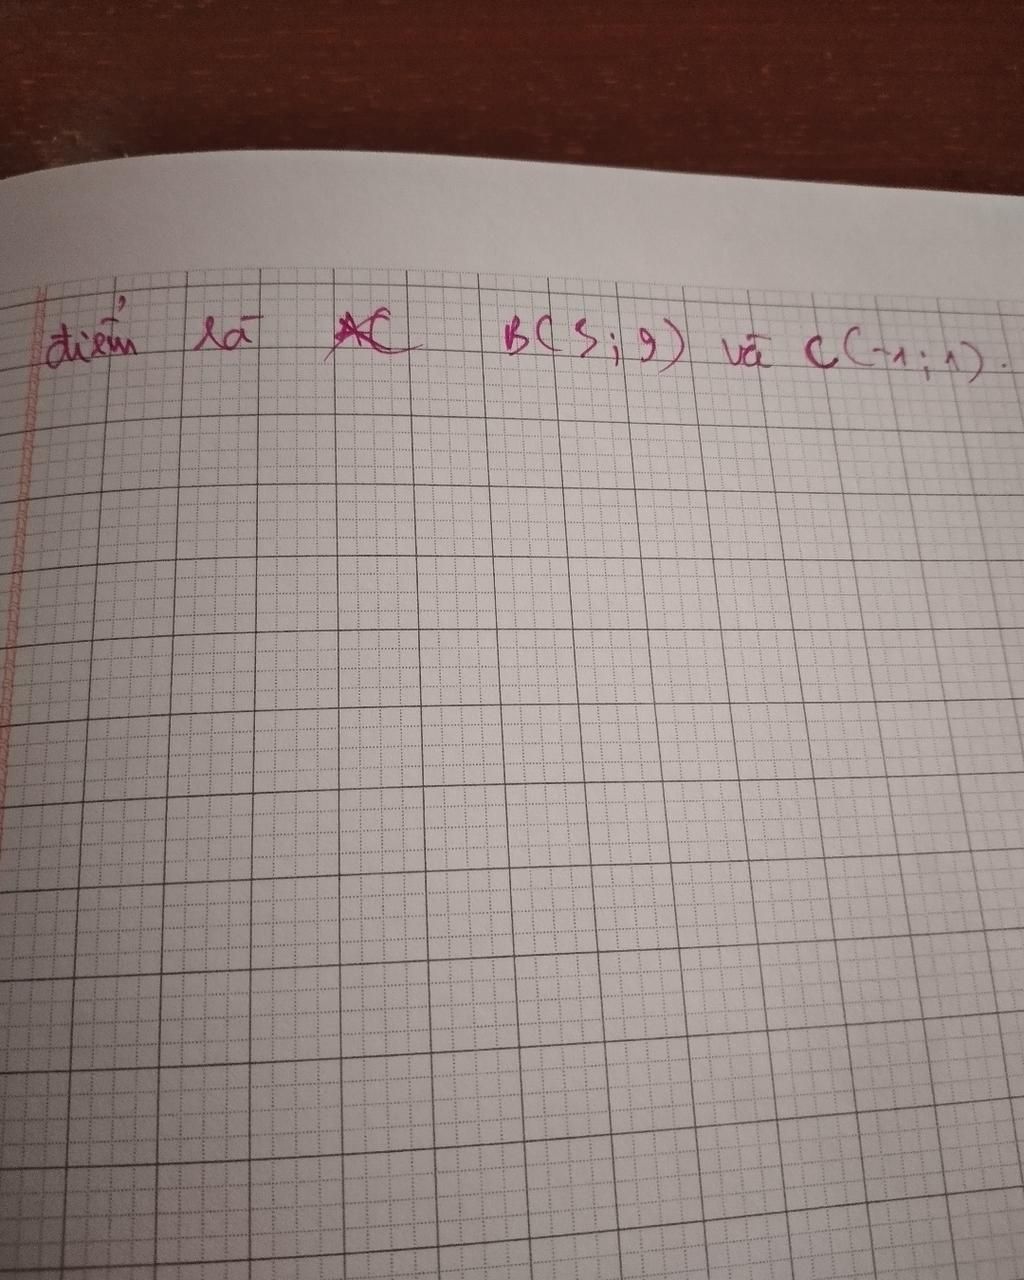 điểm là B(3;9) và C(-1;1).